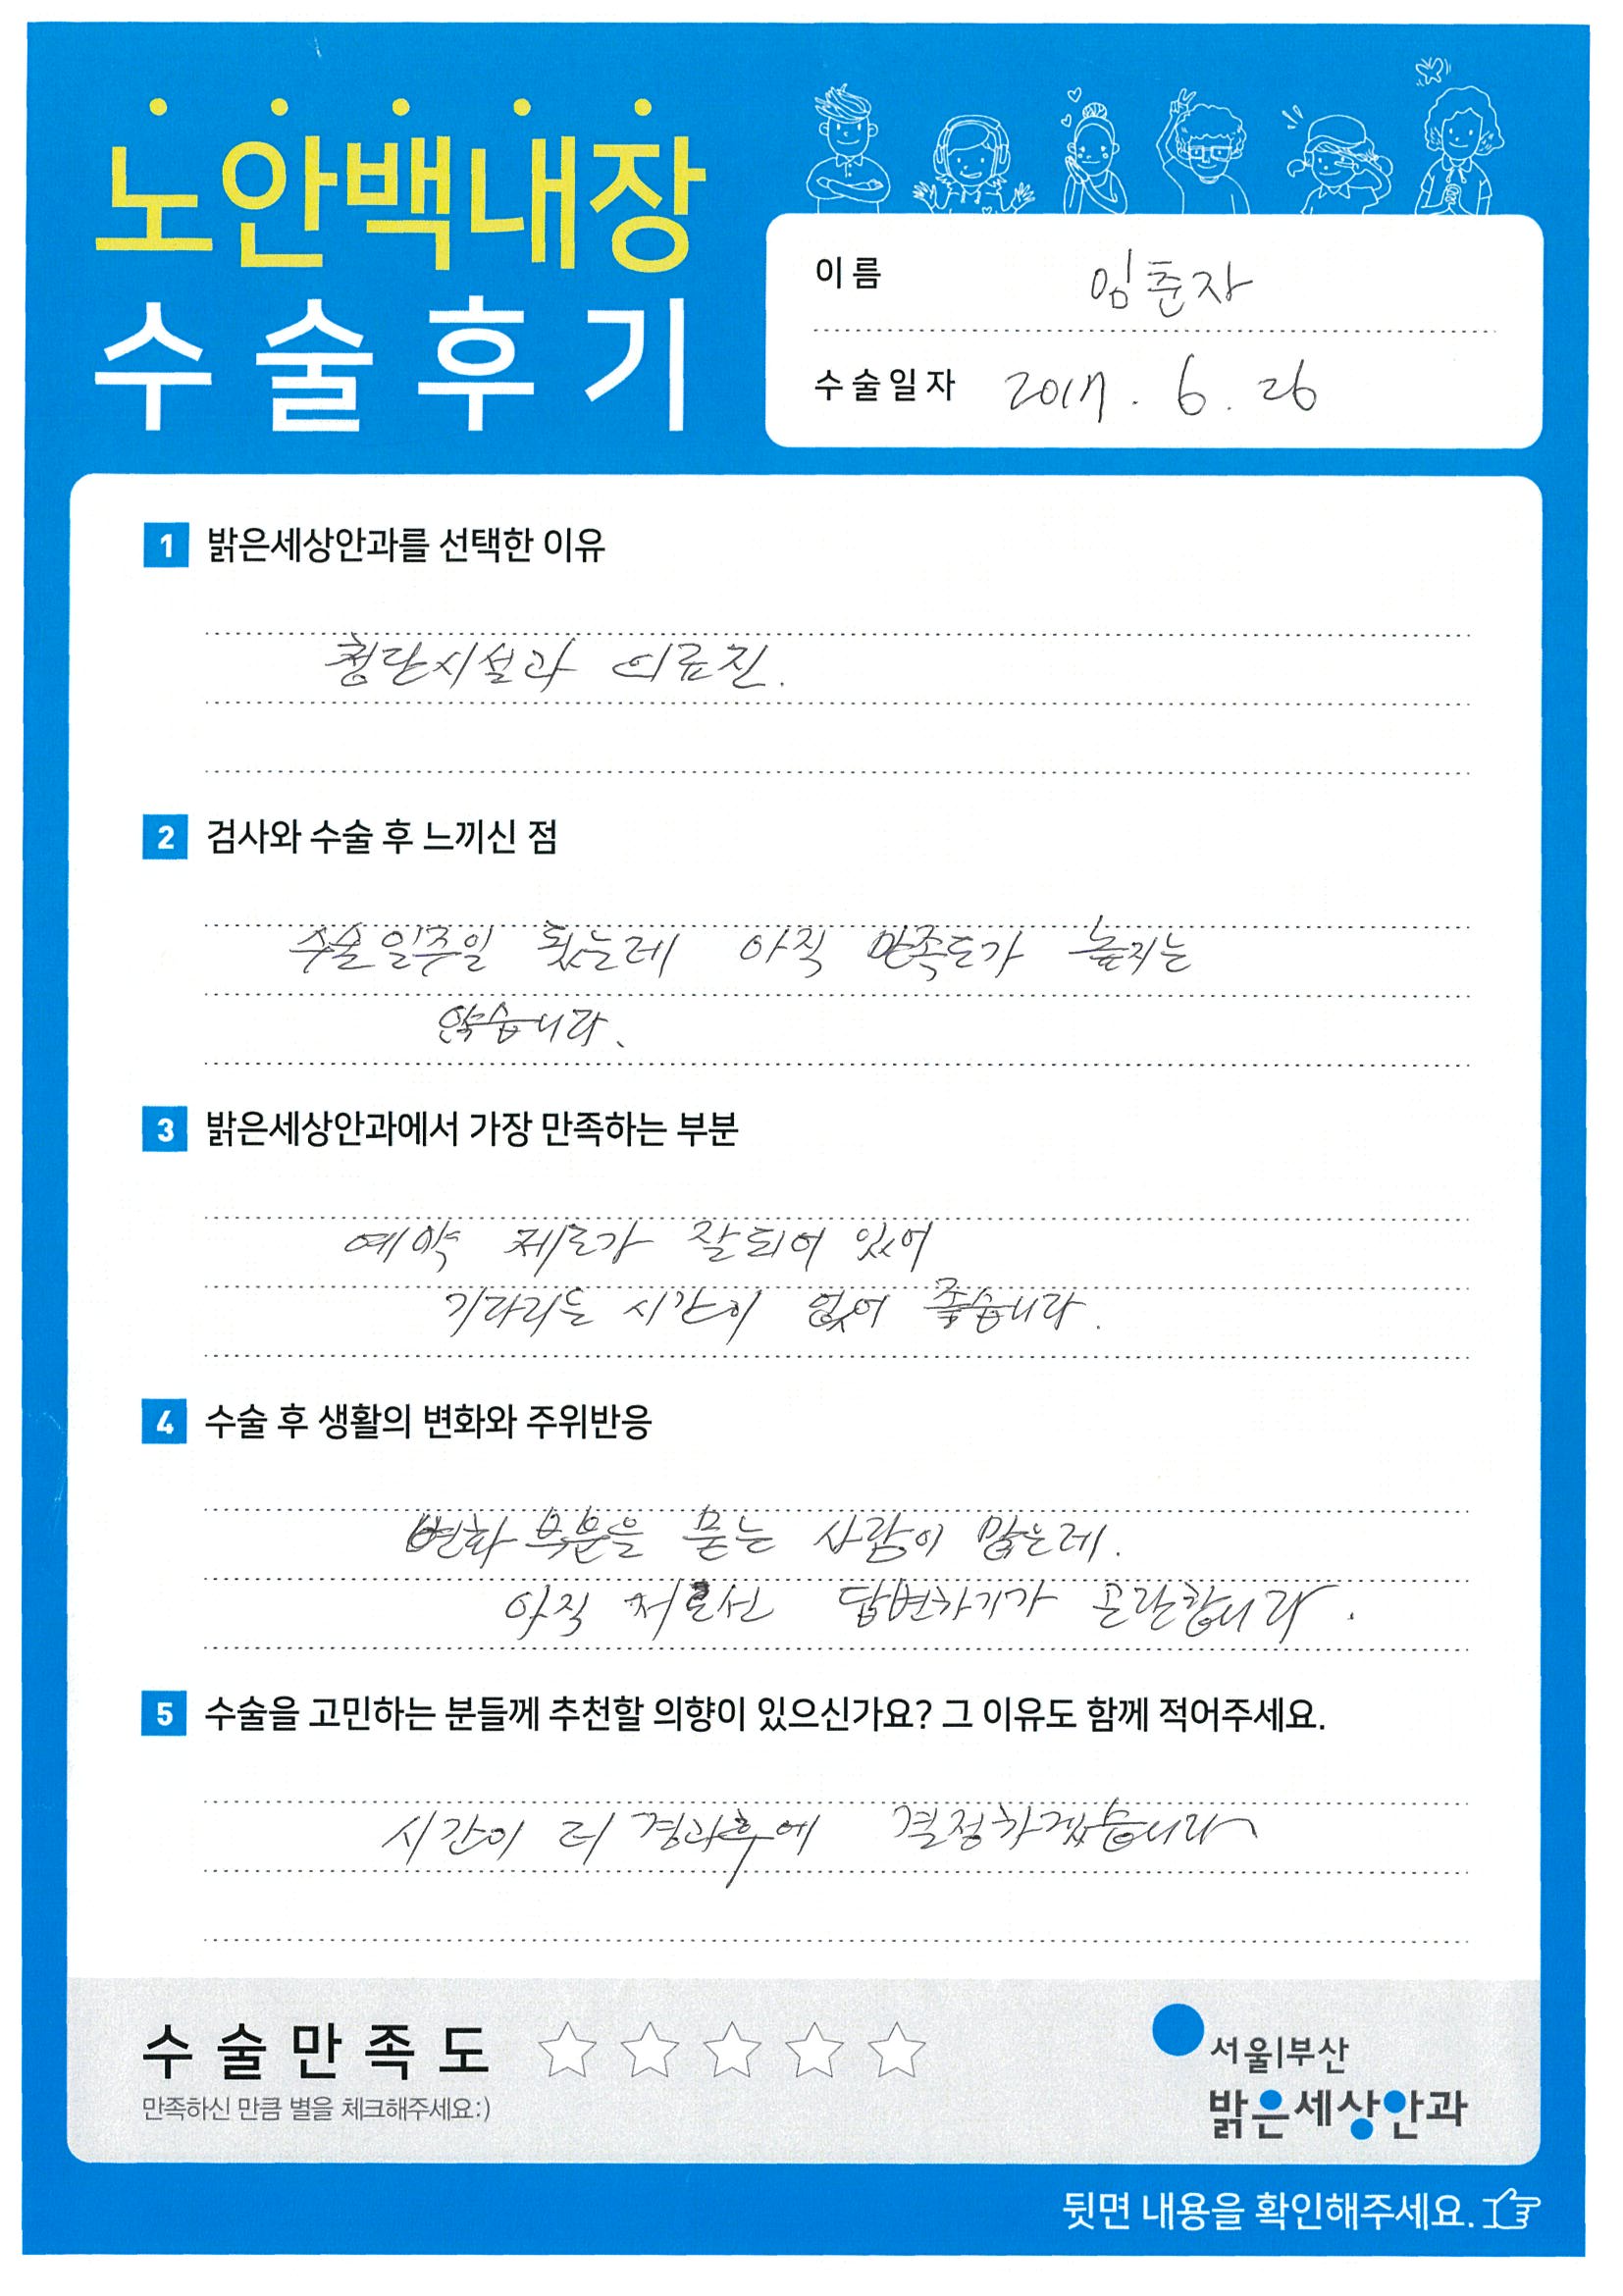 노안백내장
수술후기
이름 임춘자
수술일자 2017. 6. 26
1 밝은세상안과를 선택한 이유
첨단시설과 의료진.
2 검사와 수술 후 느끼신 점
수술일주일 됬는데 아직 만족도가 높지는
않습니다.
3 밝은세상안과에서 가장 만족하는 부분
예약 제도가 잘되어 있어
기다리는 시간이 없어 좋습니다.
4 수술 후 생활의 변화와 주위반응
변화 부분을 묻는 사람이 많은데.
아직 저로선 답변하기가 곤란합니다.
5 수술을 고민하는 분들께 추천할 의향이 있으신가요? 그 이유도 함께 적어주세요.
시간이 더 경과후에 결정하겠습니다
수술만족도
만족하신 만큼 별을 체크해주세요:)
서울|부산
밝은세상안과
뒷면 내용을 확인해주세요.